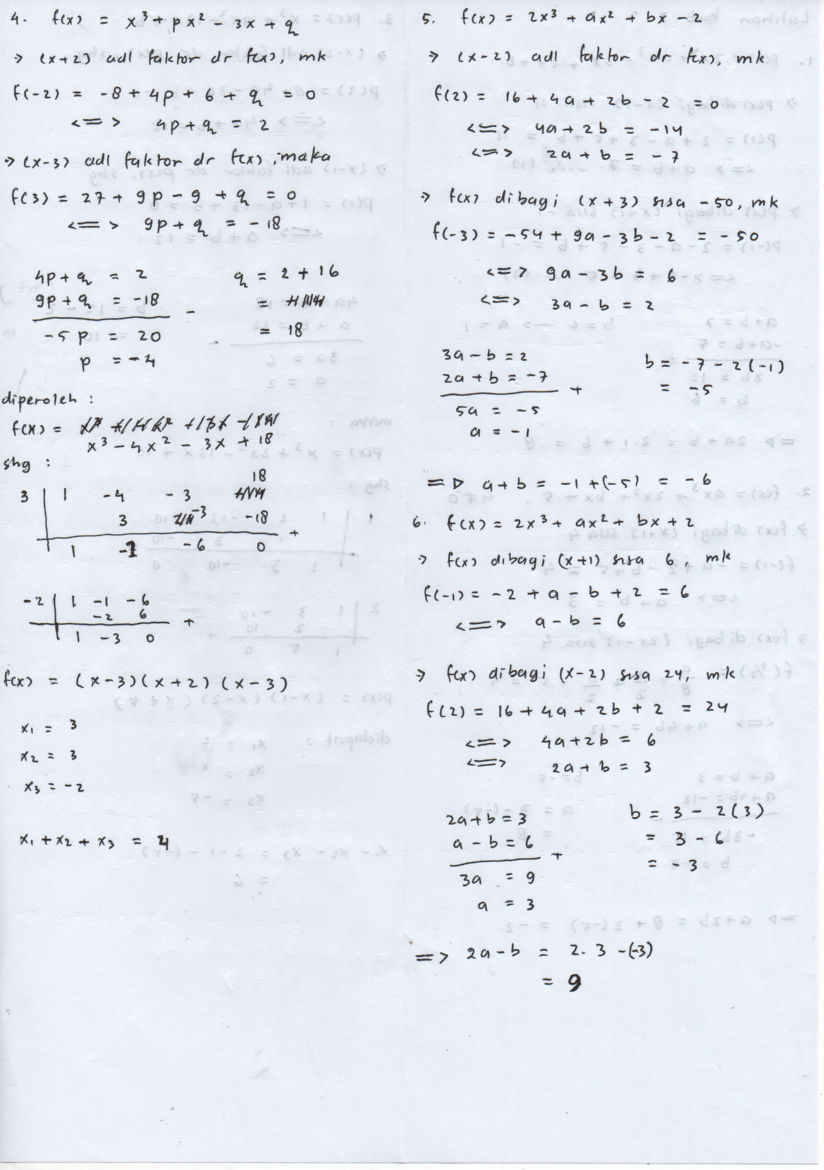 4. f(x) = x³ + px² - 3x + q
→ (x+2) adl faktor dr f(x), mk
f(-2) = -8 + 4p + 6 + q = 0
<=> 4p + q = 2
→ (x-3) adl faktor dr f(x), maka
f(3) = 27 + 9p - 9 + q = 0
<=> 9p + q = -18
4p + q = 2
9p + q = -18 -
-5p = 20
p = -4
q = 2 + 16
= 18
diperoleh :
f(x) =
x³ - 4x² - 3x + 18
shg :
18
3 | 1 -4 -3
3 -3 -18 +
1 -1 -6 0
-2 | 1 -1 -6
-2 6 +
1 -3 0
f(x) = (x-3)(x+2)(x-3)
x₁ = 3
x₂ = 3
x₃ = -2
x₁ + x₂ + x₃ = 4
5. f(x) = 2x³ + ax² + bx - 2
→ (x-2) adl faktor dr f(x), mk
f(2) = 16 + 4a + 2b - 2 = 0
<=> 4a + 2b = -14
<=> 2a + b = -7
→ f(x) dibagi (x+3) sisa -50, mk
f(-3) = -54 + 9a - 3b - 2 = -50
<=> 9a - 3b = 6
<=> 3a - b = 2
3a - b = 2
2a + b = -7 +
5a = -5
a = -1
b = -7 - 2(-1)
= -5
=> a + b = -1 + (-5) = -6
6. f(x) = 2x³ + ax² + bx + 2
→ f(x) dibagi (x+1) sisa 6, mk
f(-1) = -2 + a - b + 2 = 6
<=> a - b = 6
→ f(x) dibagi (x-2) sisa 24, mk
f(2) = 16 + 4a + 2b + 2 = 24
<=> 4a + 2b = 6
<=> 2a + b = 3
2a + b = 3
a - b = 6 +
3a = 9
a = 3
b = 3 - 2(3)
= 3 - 6
= -3
=> 2a - b = 2.3 - (-3)
= 9